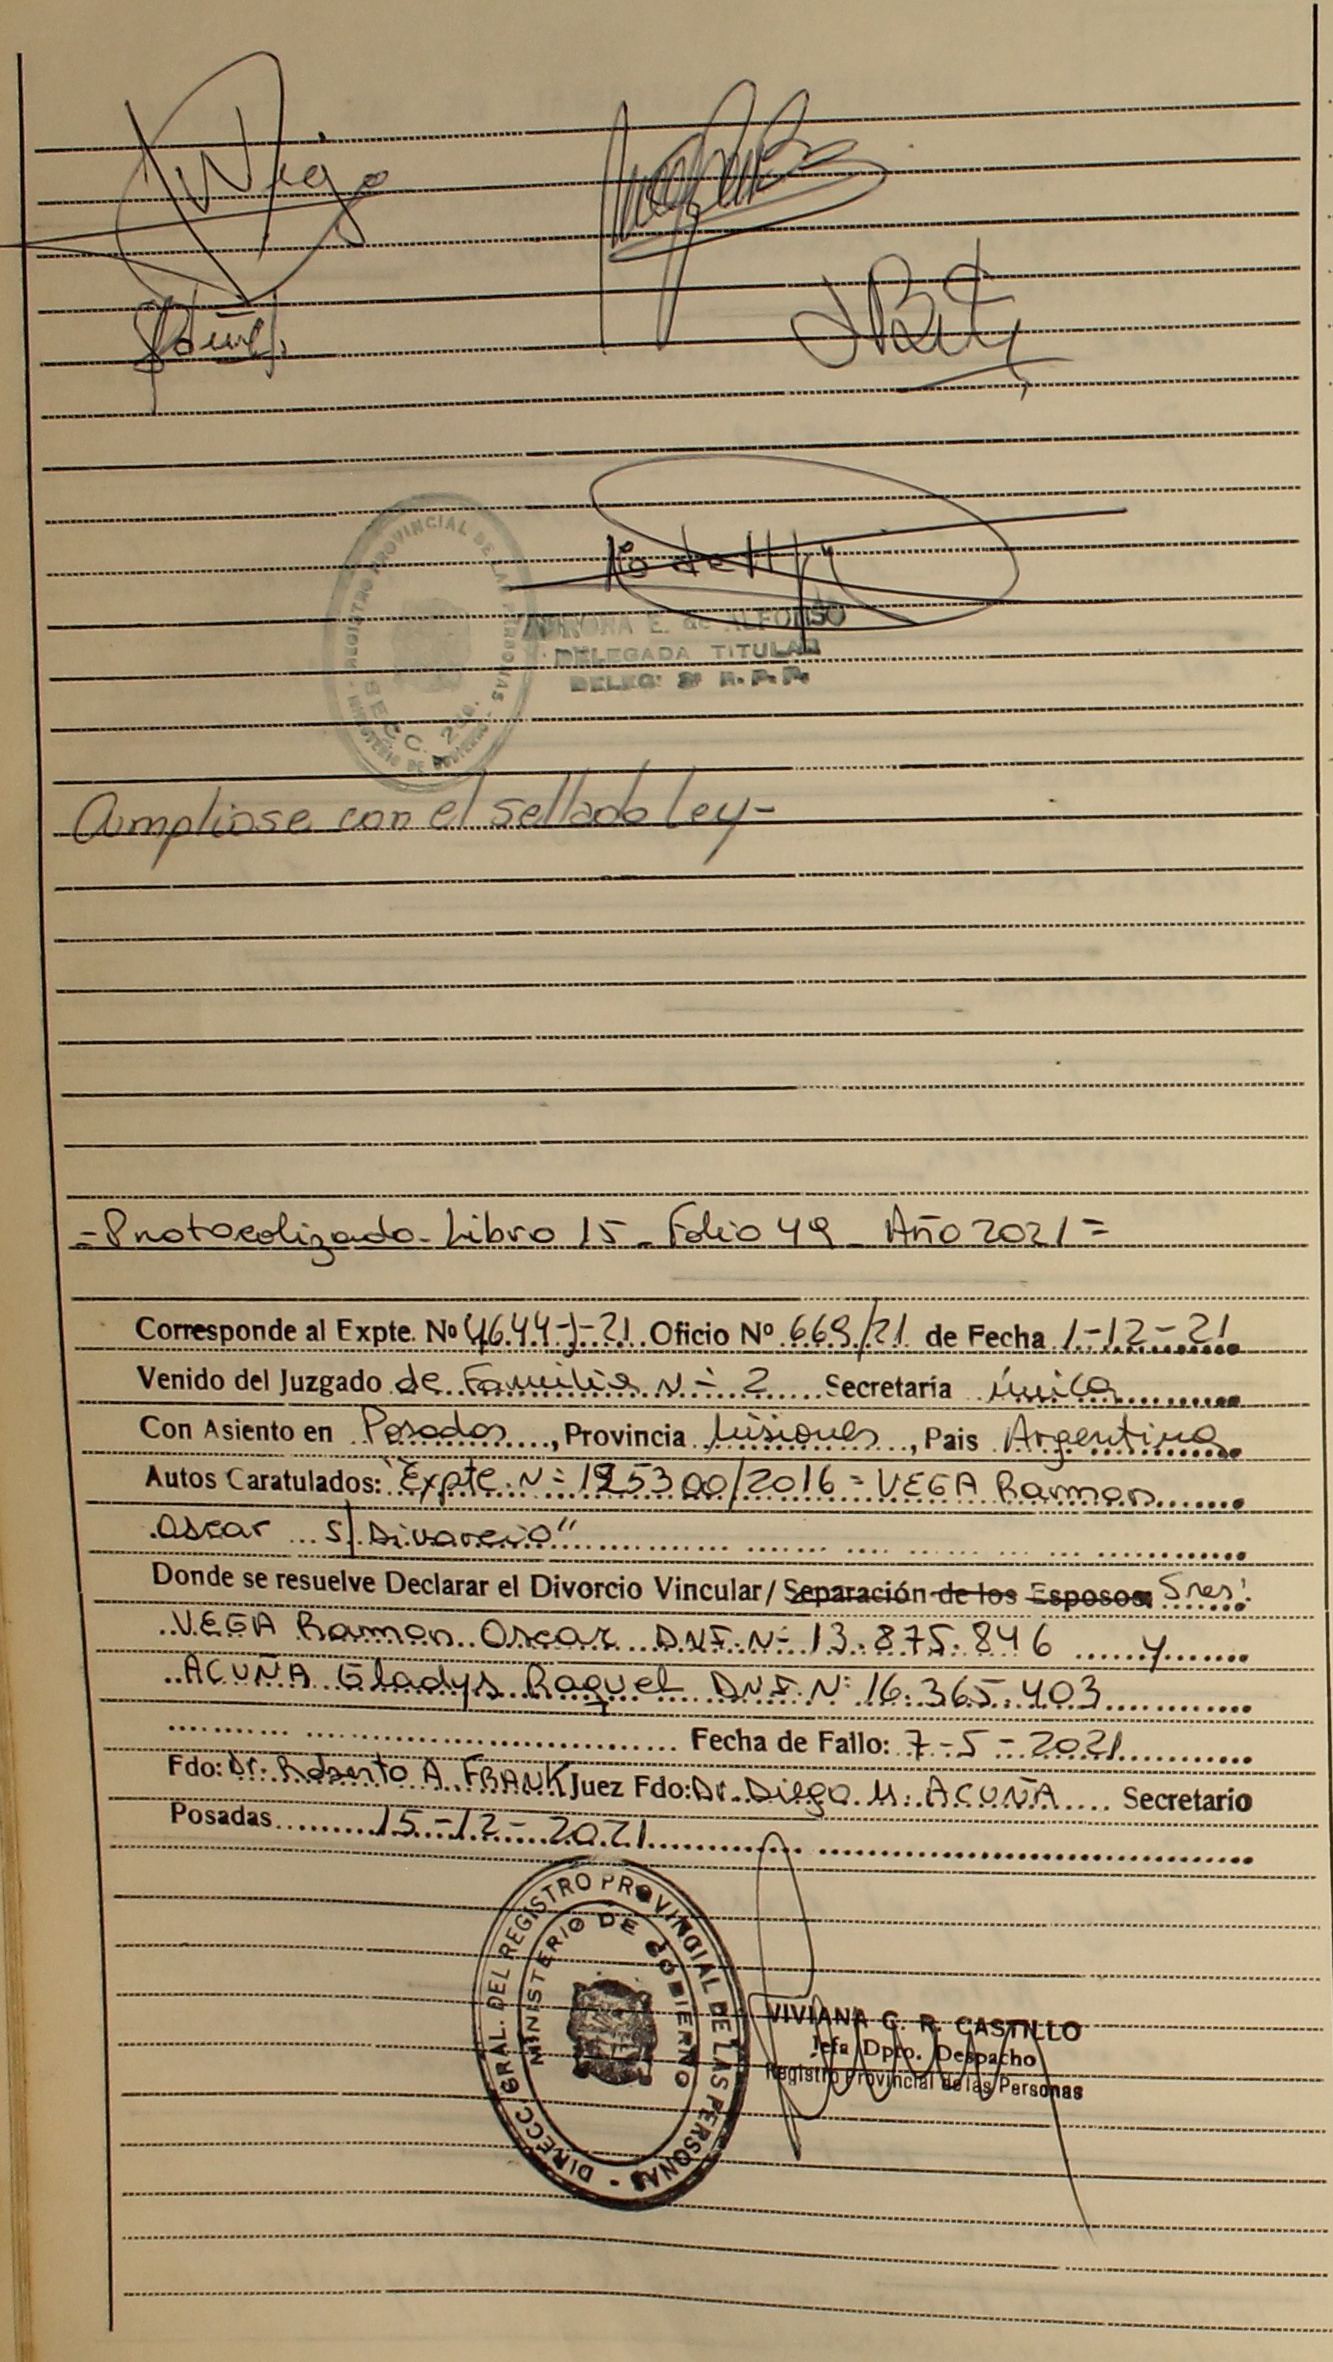 REGISTRO PROVINCIAL DE LAS PERSONAS
SECC. 2da.
MINISTERIO DE GOBIERNO
E. de ALFONSO
DELEGADA TITULAR
DELEG. 2ª R. P. P.
Ampliose con el sellado ley-
=Protocolizado- Libro 15 - Folio 49 - Año 2021=
Corresponde al Expte. Nº 4644-J-21 Oficio Nº 669/21 de Fecha 1-12-21
Venido del Juzgado de Familia Nº 2 Secretaría única
Con Asiento en Posadas, Provincia Misiones, Pais Argentina
Autos Caratulados: "Expte Nº 125300/2016 = VEGA Ramon
Oscar s/ Divorcio"
Donde se resuelve Declarar el Divorcio Vincular/ Separación de los Esposos Sres:
VEGA Ramon Oscar D.N.I. Nº 13.875.846 y
ACUÑA Gladys Raquel D.N.I. Nº 16.365.403
Fecha de Fallo: 7-5-2021
Fdo: Dr. Roberto A. FRANK Juez Fdo: Dr. Diego M. ACUÑA Secretario
Posadas 15-12-2021
DIRECC. GRAL. DEL REGISTRO PROVINCIAL DE LAS PERSONAS
MINISTERIO DE GOBIERNO
VIVIANA G. R. CASTILLO
Jefa Dpto. Despacho
Registro Provincial de las Personas